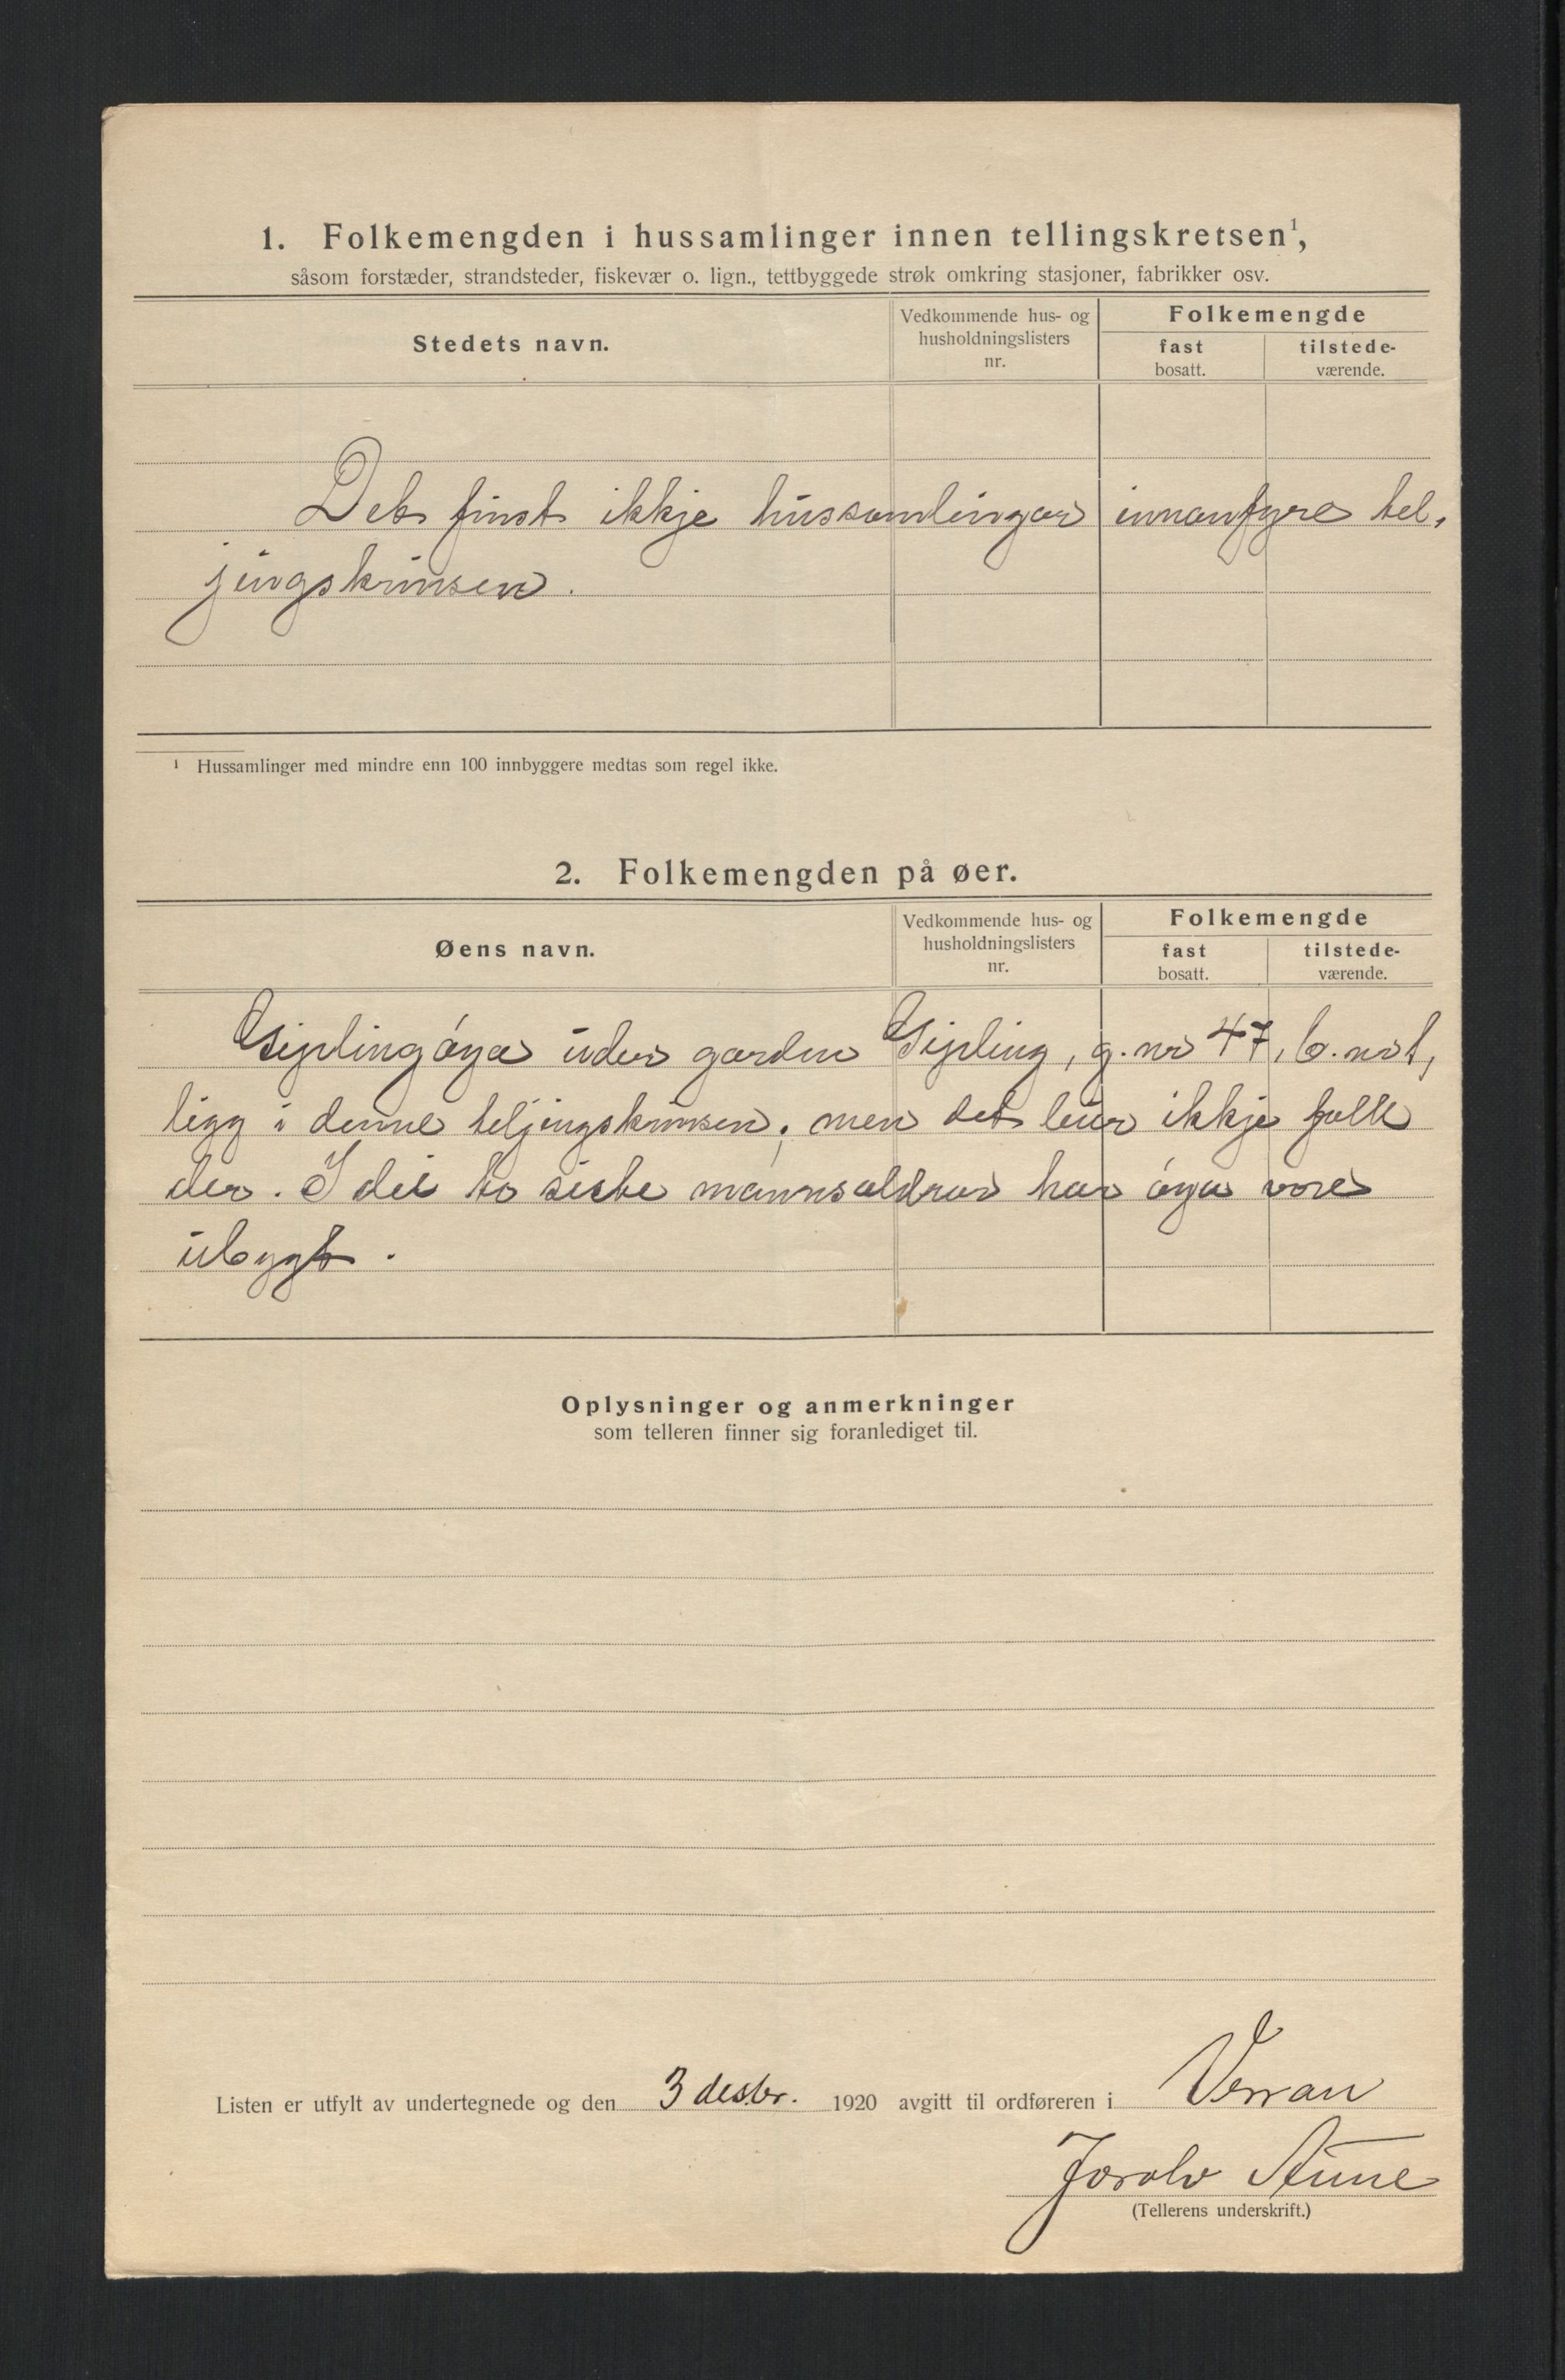 1. Folkemengden i hussamlinger innen tellingskretsen¹,
såsom forstæder, strandsteder, fiskevær o. lign., tettbyggede strøk omkring stasjoner, fabrikker osv.
Stedets navn.
Vedkommende hus- og
husholdningslisters
nr.
Folkemengde
fast
bosatt.
tilstede-
værende.
Det finst ikkje hussamlingar innanfyre tel-
jingskrinsen.
¹ Hussamlinger med mindre enn 100 innbyggere medtas som regel ikke.
2. Folkemengden på øer.
Øens navn.
Vedkommende hus- og
husholdningslisters
nr.
Folkemengde
fast
bosatt.
tilstede-
værende.
Gipling óya under garden Gipling, g.nr 47, b.nr 1,
ligg i denne teljingskrinsen; men det lever ikkje folk
der. I dei to siste mannsaldrar har óya vore
ubygt.
Oplysninger og anmerkninger
som telleren finner sig foranlediget til.
Listen er utfylt av undertegnede og den 3 desbr. 1920 avgitt til ordføreren i Verran
Jorolv Aune
(Tellerens underskrift.)